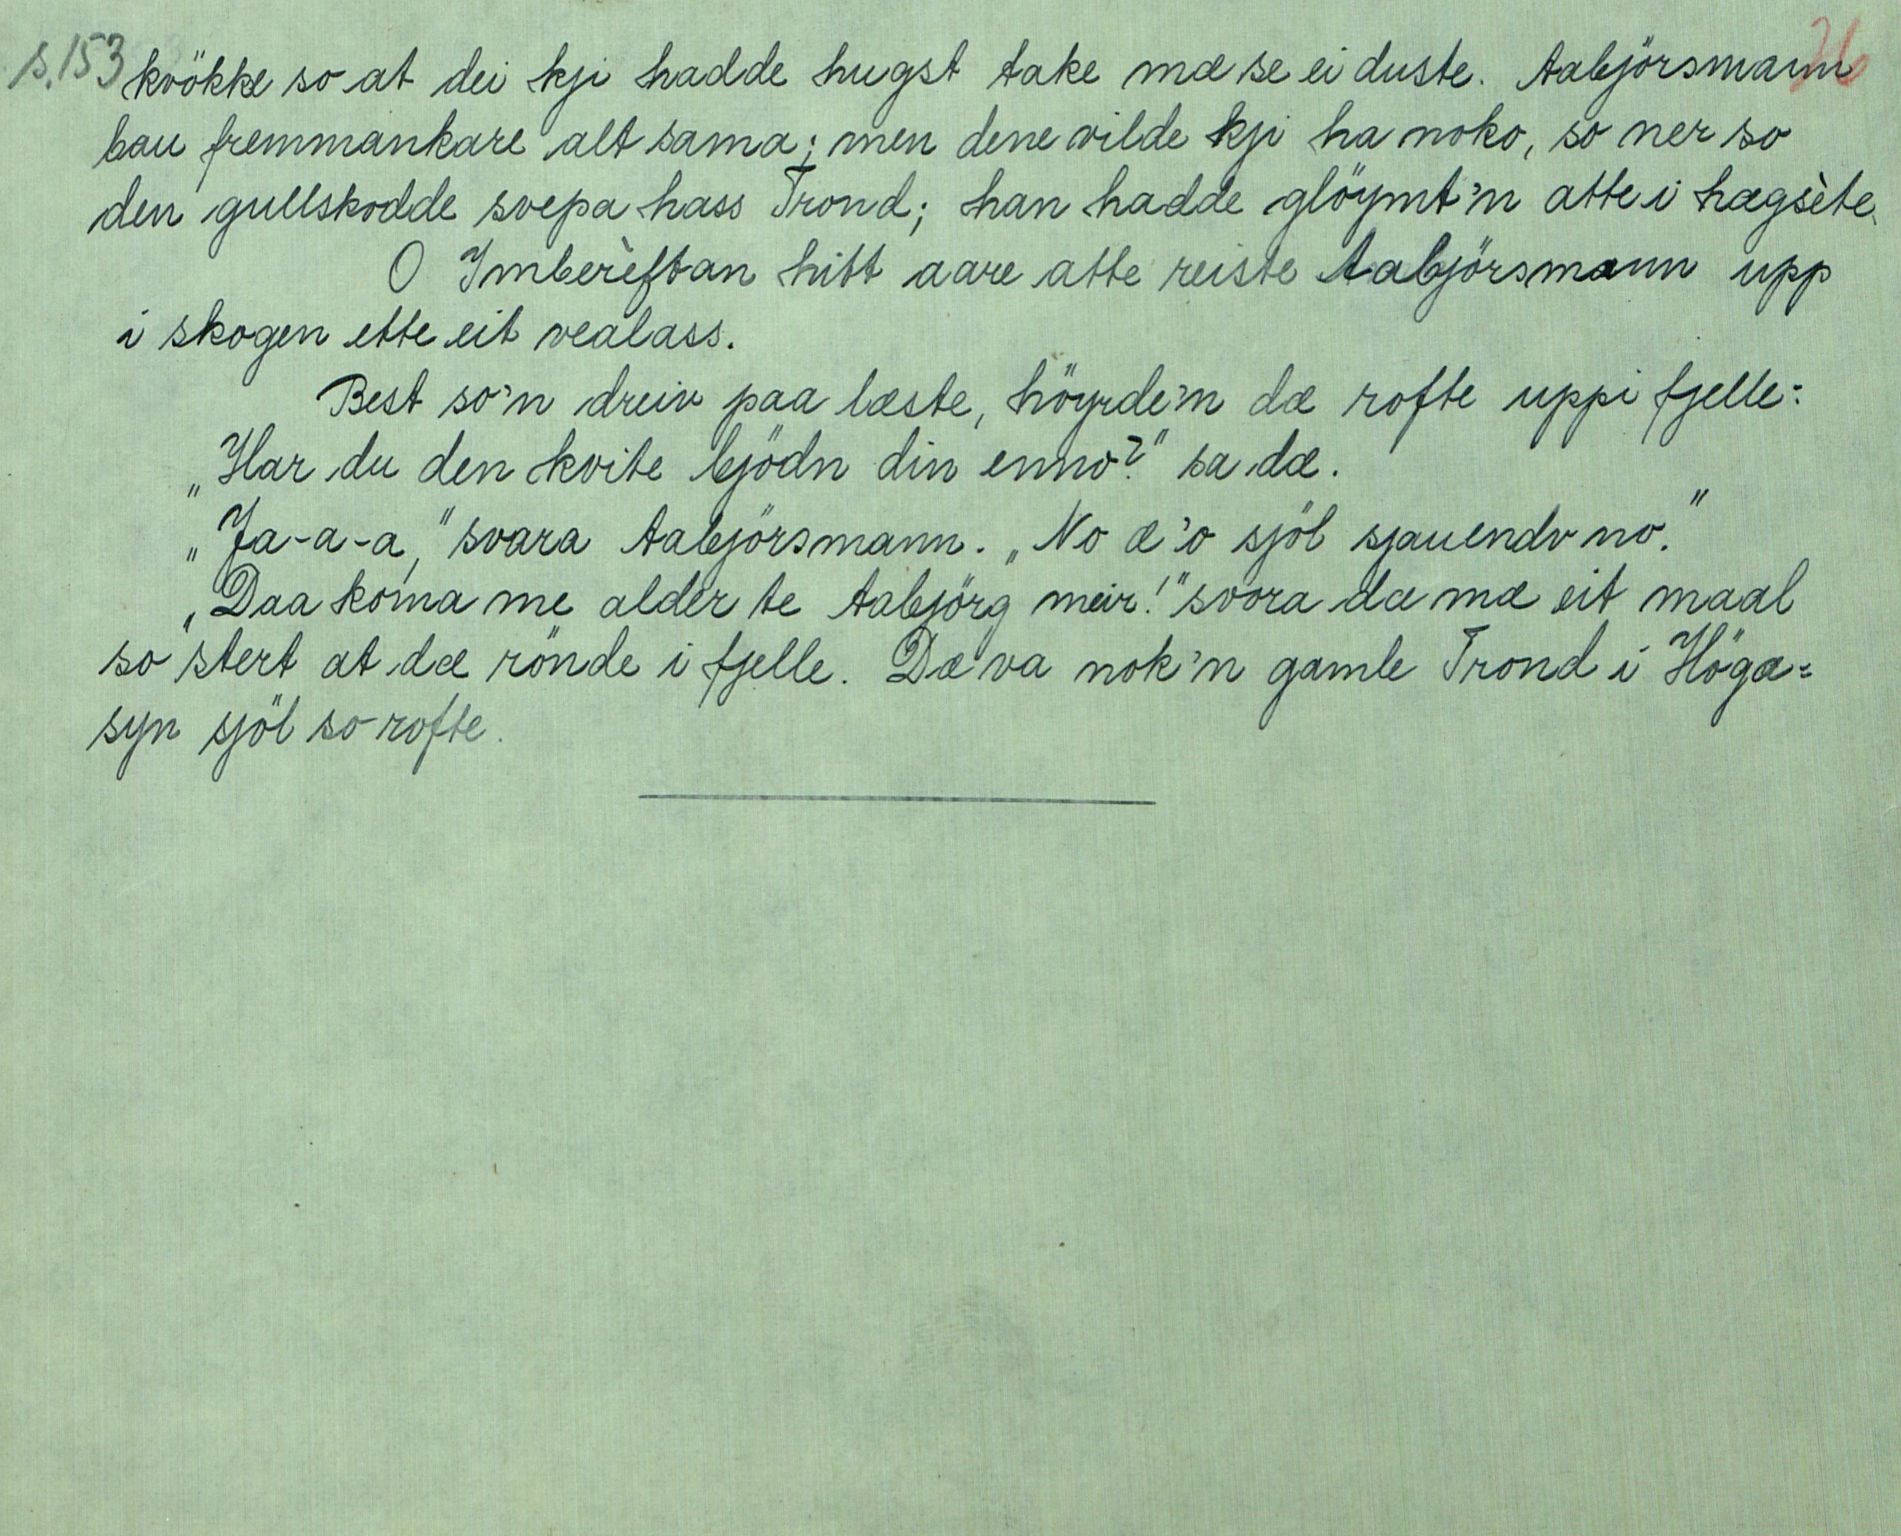 s. 153 26
kvökke so at dei kji hadde hugst take mæ se ei duste. Aabjörsmann
bau fremmankare alt sama; men dene vilde kji ha noko, so ner so
den gullskodde svepa hass Trond; han hadde glöymt'n atte i hægsète.
O Imberèftan hitt aare atte reiste Aabjörsmann upp
i skogen ette eit vealass.
Best so'n dreiv paa læste, höyrde'n dæ rofte uppi fjelle:
„Har du den kvite bjödn din enno?" sa dæ.
„Ja-a-a," svara Aabjörsmann. „No æ'o sjöl sjauende no."
„Daa koma me alder te Aabjörg meir!" svora dæ mæ eit maal
so stert at dæ rönde i fjelle. Dæ va nok'n gamle Trond i Högæ=
syn sjöl so rofte.